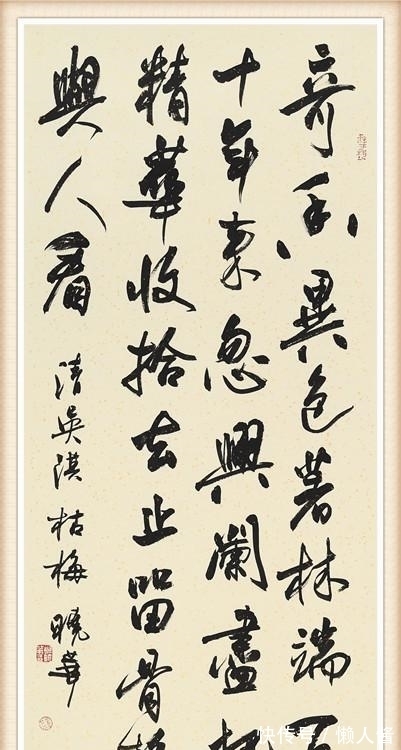 奇香異色著林端
十年来忽興闌盡
精華收拾去止留骨
與人看
清吳淇 枯梅 曉華
快传号/懒人酱